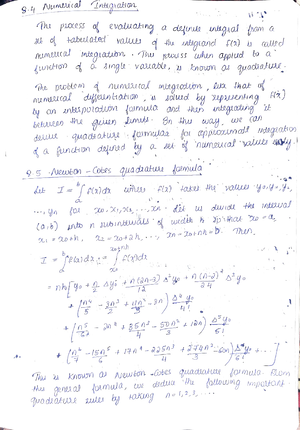 8.4 Numerical Integration
The process of evaluating a definite integral from a
set of tabulated values of the integrand f(x) is called
numerical integration. This process when applied to a
function of a single variable, is known as quadrature.
The problem of numerical integration, like that of
numerical differentiation, is solved by representing f(x)
by an interpolation formula and then integrating it
between the given limits. In this way, we can
derive quadrature formulas for approximate integration
of a function defined by a set of numerical values only.
8.5 Newton-Cotes quadrature formula
Let I = ∫ₐᵇ f(x)dx where f(x) takes the values y₀, y₁, y₂,
..., yn for x₀, x₁, x₂, ... Let us divide the interval
(a, b) into n subintervals of width h so that x₀ = a,
x₁ = x₀+h, x₂ = x₀+2h, ..., xn = x₀+nh = b. Then,
I = ∫ f(x)dx = ∫ f(x)dx
= nh[y₀ + n/2 Δy₀ + n(2n-3)/12 Δ²y₀ + n(n-2)²/24 Δ³y₀
+ (n⁴/5 - 3n³/2 + 11n²/3 - 3n) Δ⁴y₀/4!
+ (n⁵/6 - 2n⁴ + 35n³/4 - 50n²/3 + 12n) Δ⁵y₀/5!
+ (n⁶/7 - 15n⁵/6 + 17n⁴ - 225n³/4 + 274n²/3 - 60n) Δ⁶y₀/6! + ...]
This is known as Newton-Cotes quadrature formula. From
this general formula, we deduce the following important
quadrature rules by taking n = 1, 2, 3, ...